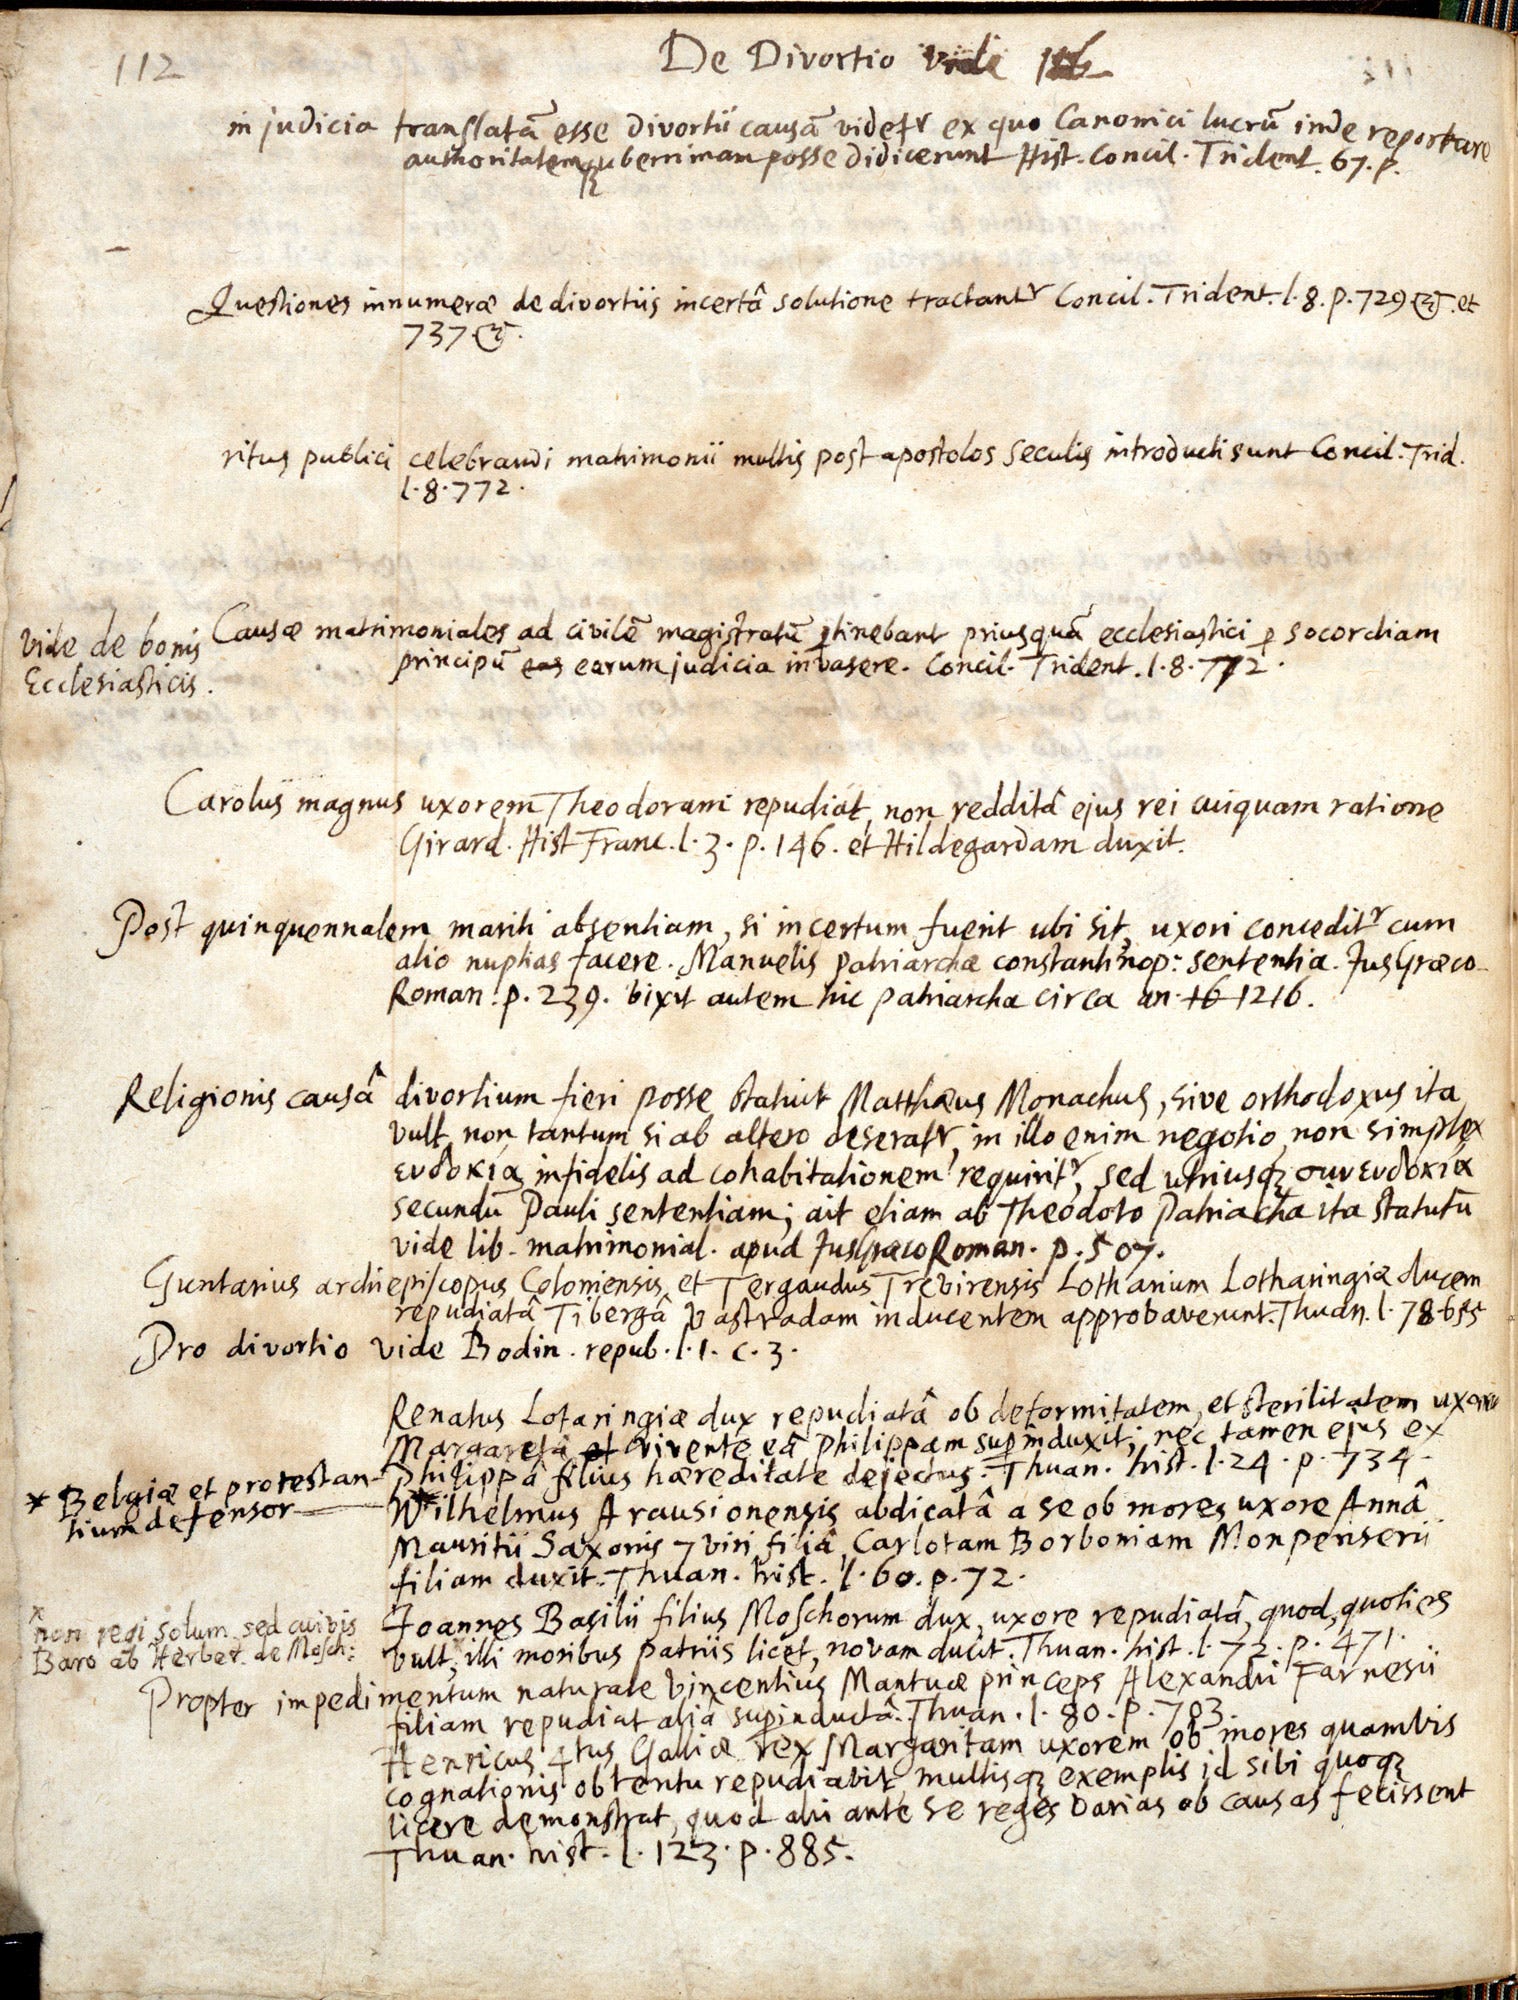 112
De Divortio vide 116
in judicia translatā esse divortii causā videtr ex quo Canonici lucrū inde reportare
authoritatemqꝫ uberrimam posse didicerunt Hist. Concil. Trident. 67. p.
Questiones innumeræ de divortiis incertâ solutione tractantr Concil. Trident. l. 8. p. 729 &c. et
737. &c.
ritus publici celebrandi matrimonii multis post apostolos seculis introducti sunt Concil. Trid.
l. 8. 772.
vide de bonis
Ecclesiasticis.
Causæ matrimoniales ad civilē magistratū ꝑtinebant priusquā ecclesiastici ꝑ socordiam
principū eas earum judicia invasere. Concil. Trident. l. 8. 772.
Carolus magnus uxorem Theodoram repudiat, non redditâ ejus rei cuiquam ratione
Girard. Hist Franc. l. 3. p. 146. et Hildegardam duxit.
Post quinquennalem mariti absentiam, si incertum fuerit ubi sit, uxori conceditr cum
alio nuptias facere. Manuelis patriarchæ constantinop: sententia. Jus Græco-
Roman: p. 239. vixit autem hic patriarcha circa an. 16 1216.
Religionis causâ divortium fieri posse statuit Matthæus Monachus, sive orthodoxus ita
vult, non tantum si ab altero deseratr, in illo enim negotio non simplex
ευδοκία infidelis ad cohabitationem requiritr, sed utriusqꝫ συνευδοκία
secundū Pauli sententiam; ait etiam ab Theodoto Patriacha ita statutū
vide lib. matrimonial. apud Jus Græco Roman. p. 507.
Guntarius archiepiscopus Coloniensis et Tergaudus Trevirensis Lotharium Lotharingiæ ducem
repudiatâ Tibergâ Vastradam inducentem approbaverunt. Thuan. l. 78 655
Pro divortio vide Bodin. repub. l. 1. c. 3.
Renatus Lotaringiæ dux repudiatâ ob deformitatem, et sterilitatem uxore
Margaretâ et vivente eâ Philippam suꝑinduxit; nec tamen ejus ex
Philippâ filius hæreditate dejectus. Thuan. hist. l. 24. p. 734.
* Belgiæ et protestan-
tium defensor
Wilhelmus Arausionensis abdicatâ a se ob mores uxore Annâ
Mauritii Saxonis 7viri filiâ, Carlotam Borboniam Monpenserii
filiam duxit. Thuan. hist. l. 60. p. 72.
x
non regi solum sed cuivis
Baro ab Herber. de Mosch:
Joannes Basilii filius Moschorum dux, uxore repudiatâ, quod, quoties
vult, illi moribus patriis licet, novam ducit. Thuan. hist. l. 72. p. 471.
Propter impedimentum naturale Vincentius Mantuæ princeps Alexandri Farnesii
filiam repudiat aliâ suꝑinductâ. Thuan. l. 80. p. 783.
Henricus 4tus Galliæ rex Margaritam uxorem ob mores quamvis
cognationis obtentu repudiavit, multisqꝫ exemplis id sibi quoqꝫ
licere demonstrat, quod alii ante se reges varias ob causas fecissent
Thuan. hist. l. 123. p. 885.